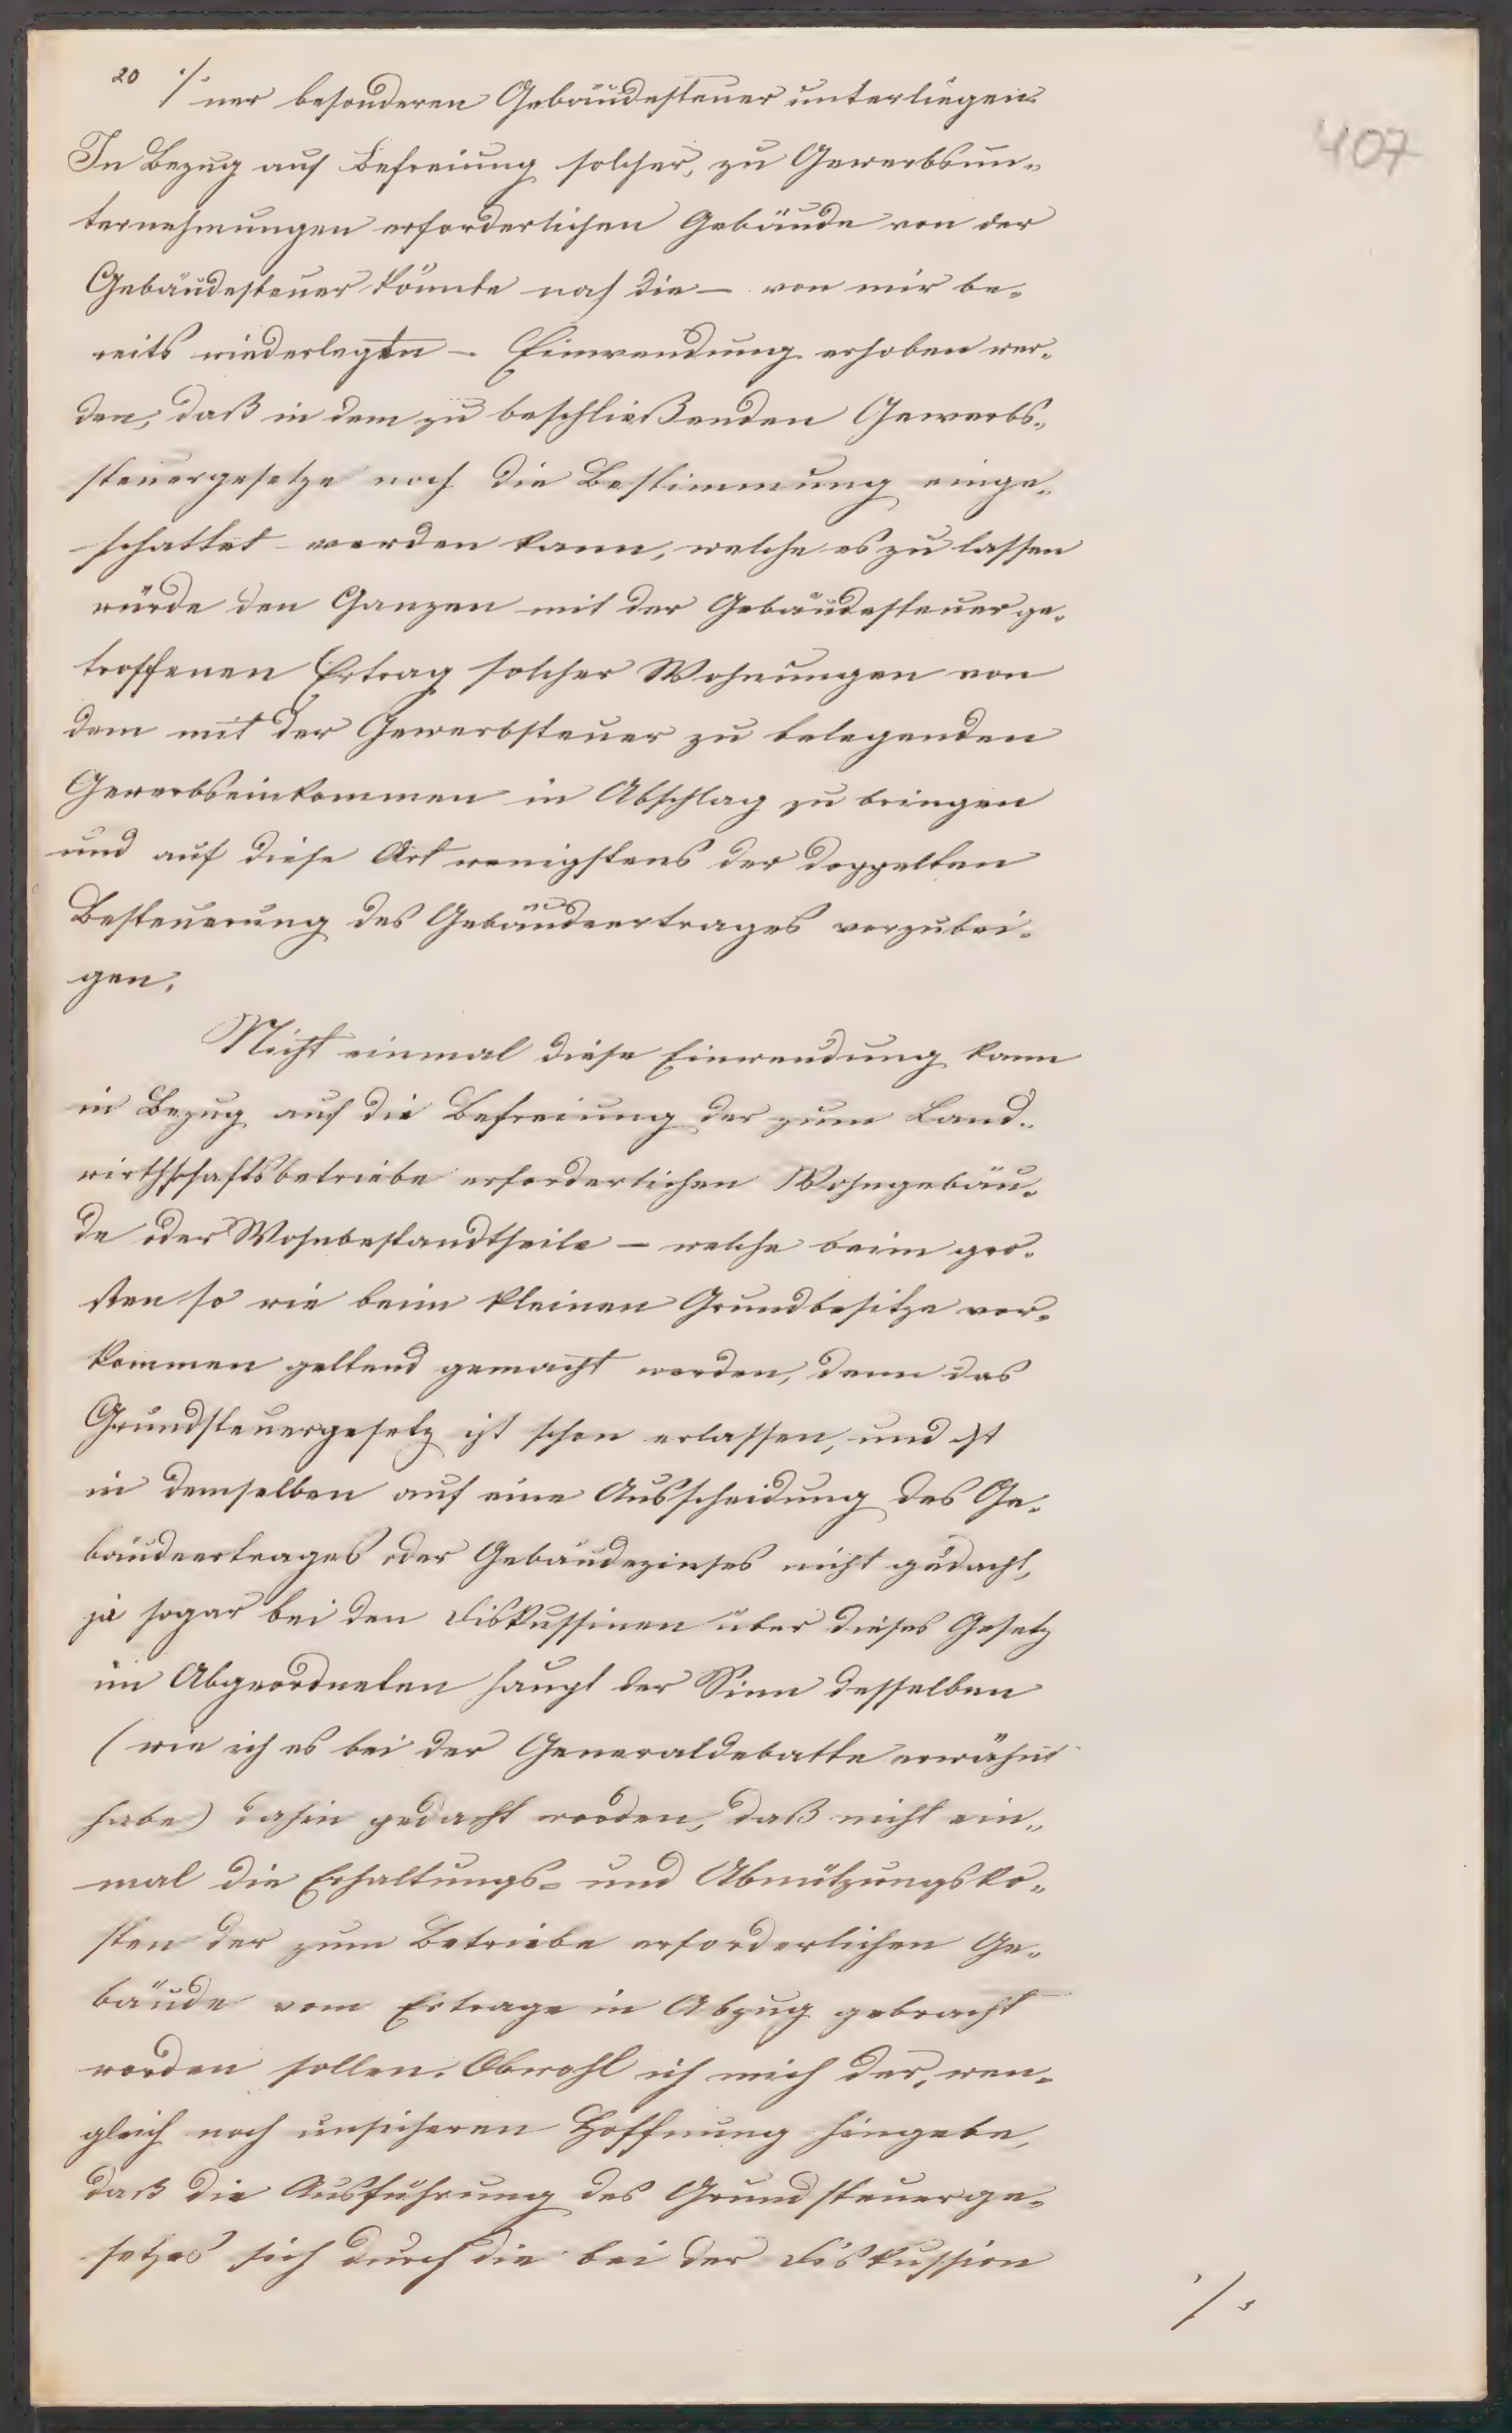 20 ·/· ner besonderen Gebäudesteuer unterliegen.
407
In Bezug auf Befreiung solcher, zu Gewerbsun-
ternehmungen erforderlichen Gebäude von der
Gebäudesteuer könnte noch die – von mir be-
reits wiederlegten – Einwendung erhoben wer-
den, daß in dem zu beschließenden Gewerbs-
steuergesetze noch die Bestimmung einge-
schattet werden kann, welche es zu lassen
würde den Ganzen mit der Gebäudesteuer ge-
troffenen Ertrag solcher Wohnungen von
dem mit der Gewerbsteuer zu belegenden
Gewerbseinkommen in Abschlag zu bringen
und auf diese Art wenigstens der doppelten
Besteuerung des Gebäudeertrages vorzubei-
gen.
Nicht einmal diese Einwendung kann
in Bezug auf die Befreiung der zum Land-
wirthschaftsbetriebe erforderlichen Wohngebäu-
de oder Wohnbestandtheile – welche beim grö-
sten so wie beim kleinen Grundbesitze vor-
kommen geltend gemacht werden, denn das
Grundsteuergesetz ist schon erlassen, und ist
in demselben auf eine Ausscheidung des Ge-
bäudeertrages oder Gebäudezinses nicht gedacht,
ja sogar bei den Diskussinen über dieses Gesetz
im Abgeordneten haupt der Sinn desselben
(wie ich es bei der Generaldebatte erwähnt
habe) dahin gedacht worden, daß nicht ein-
mal die Erhaltungs- und Abnützungsko-
sten der zum Betriebe erforderlichen Ge-
bäude vom Ertrage in Abzug gebracht
worden sollen. Obwohl ich mich der, wen-
gleich noch unsicheren Hoffnung hingebe,
daß die Ausführung des Grundsteuerge-
setzes sich durch die bei der Diskussion
·/·